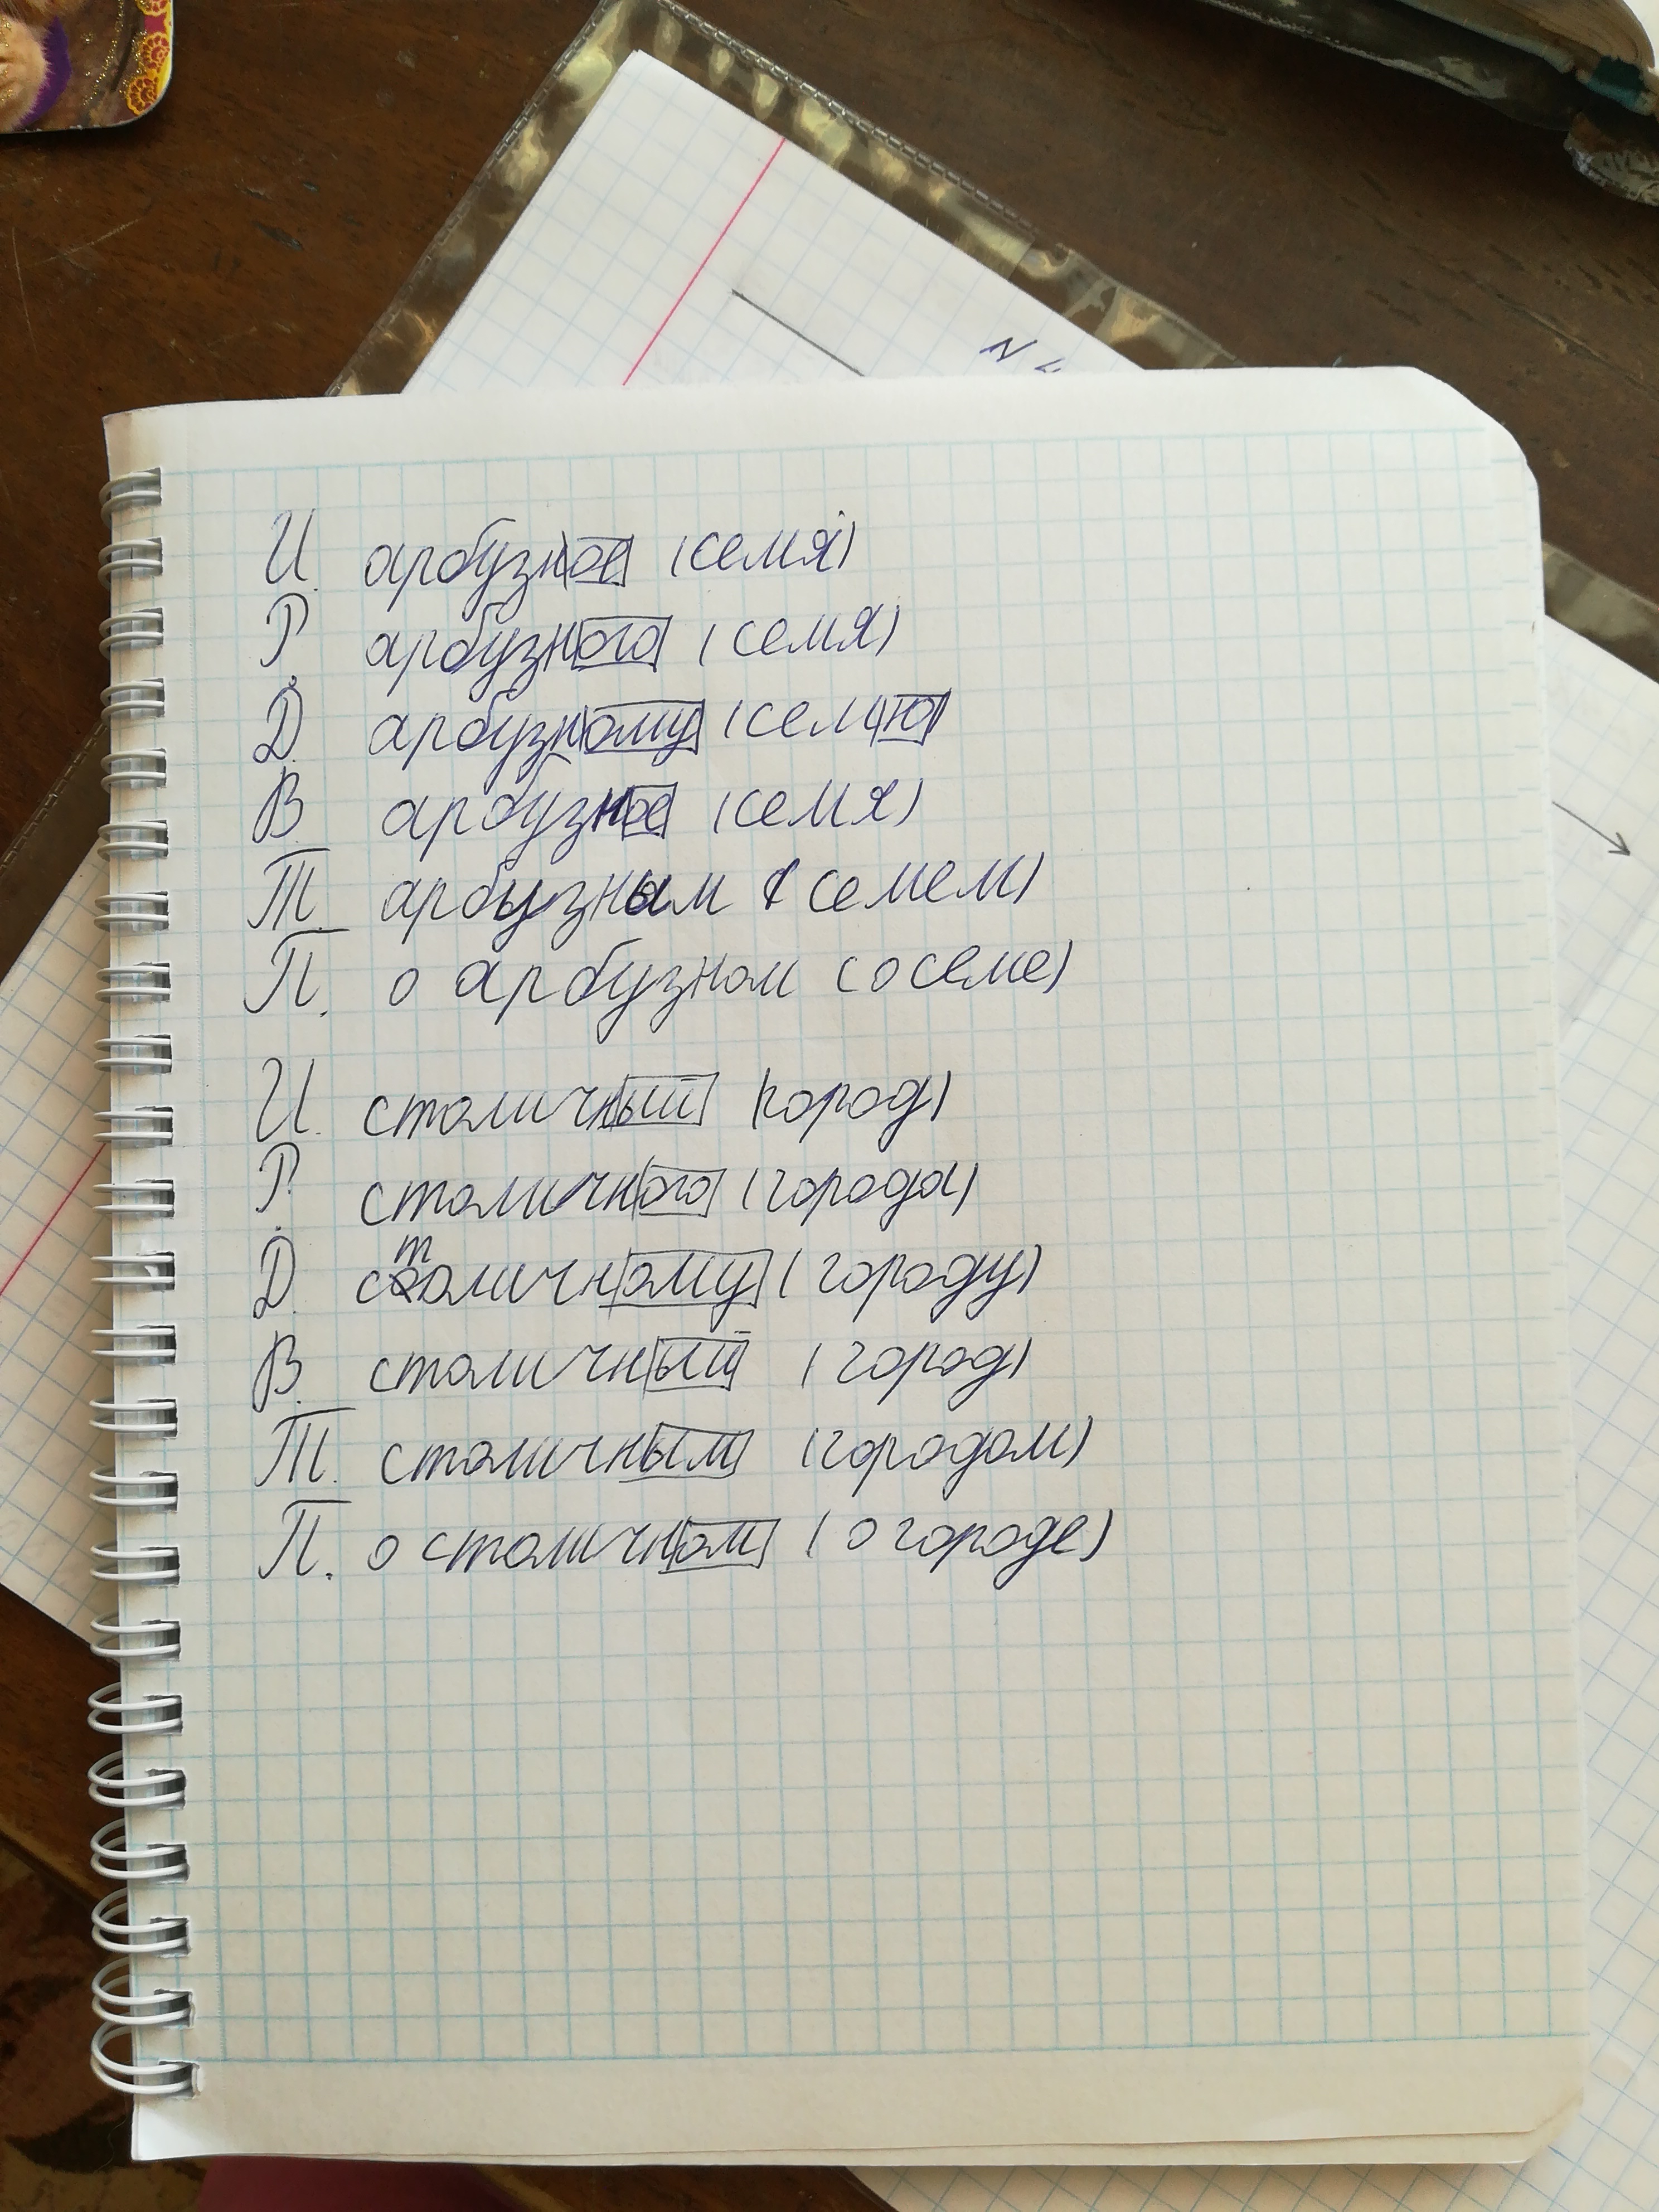 N
И. арбузное (семя)
Р. арбузного (семя)
Д. арбузному (семю)
В. арбузное (семя)
Т. арбузным (семем)
П. о арбузном (о семе)
И. столичный (город)
Р. столичного (города)
Д. столичному (городу)
В. столичный (город)
Т. столичным (городом)
П. о столичном (о городе)